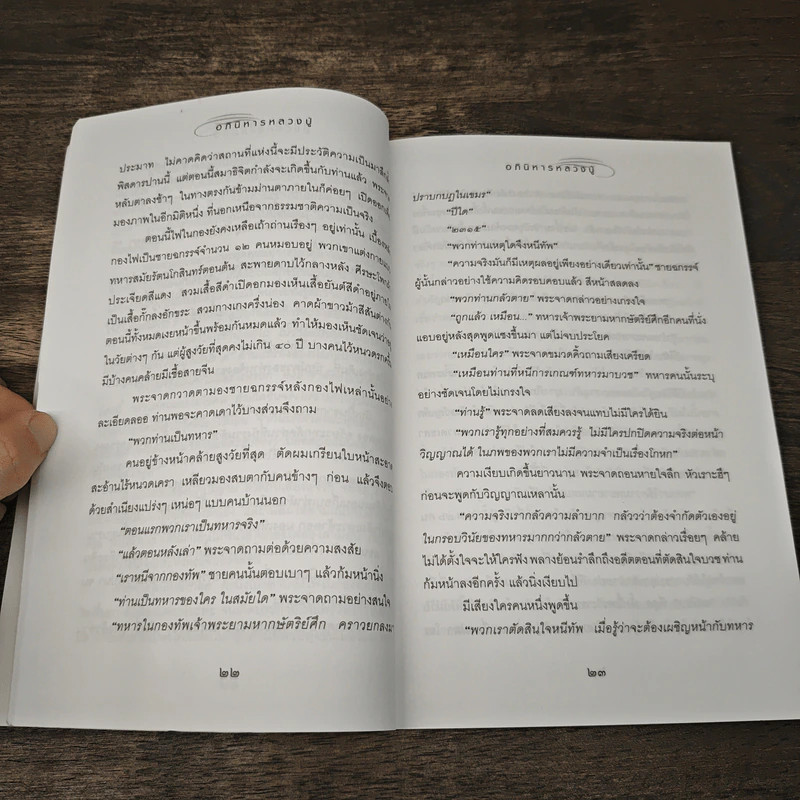 อภินิหารหลวงปู่
ประมาท ไม่คาดคิดว่าสถานที่แห่งนี้จะมีประวัติความเป็นมาลึกล้ำ
พิสดารปานนี้ แต่ตอนนี้สมาธิจิตกำลังจะเกิดขึ้นกับท่านแล้ว
หลับตาลงช้าๆ ในทางตรงกันข้ามม่านตาภายในก็ค่อยๆ เปิดออกเพื่อ
มองภาพในอีกมิติหนึ่ง ที่นอกเหนือจากธรรมชาติความเป็นจริง
ตอนนี้ไฟในกองยังคงเหลือเถ้าถ่านเรื่อยๆ อยู่เท่านั้น เบื้องหลัง
กองไฟเป็นชายฉกรรจ์จำนวน ๑๒ คนหมอบอยู่ พวกเขาแต่งกายแบบ
ทหารสมัยรัตนโกสินทร์ตอนต้น สะพายดาบไว้กลางหลัง ศีรษะโพก
ประเจียดสีแดง สวมเสื้อสีดำเปิดอกมองเห็นเสื้อยันต์สีดำอยู่ภายใน
เป็นเสื้อกั๊กลงอักขระ สวมกางเกงครึ่งน่อง คาดผ้าขาวม้าสีสันต่างกัน
ตอนนี้ทั้งหมดเงยหน้าขึ้นพร้อมกันหมดแล้ว ทำให้มองเห็นชัดเจนว่า
ในวัยต่างๆ กัน แต่ผู้สูงวัยที่สุดคงไม่เกิน ๔๐ ปี บางคนไว้หนวดรกครึ้ม
มีบ้างคนคล้ายมีเชื้อสายจีน
พระจาดกวาดตามองชายฉกรรจ์หลังกองไฟเหล่านั้นอย่าง
ละเอียดลออ ท่านพอจะคาดเดาไว้บางส่วนจึงถาม
“พวกท่านเป็นทหาร”
คนอยู่ข้างหน้าคล้ายสูงวัยที่สุด ตัดผมเกรียนใบหน้าสะอาด
สะอ้านไร้หนวดเครา เหลียวมองสบตากับคนข้างๆ ก่อน แล้วจึงตอบ
ด้วยสำเนียงแปร่งๆ เหน่อๆ แบบคนบ้านนอก
“ตอนแรกพวกเราเป็นทหารจริง”
“แล้วตอนหลังเล่า” พระจาดถามต่อด้วยความสงสัย
“เราหนีจากกองทัพ” ชายคนนั้นตอบเบาๆ แล้วก้มหน้านิ่ง
“ท่านเป็นทหารของใคร ในสมัยใด” พระจาดถามอย่างสนใจ
“ทหารในกองทัพเจ้าพระยามหากษัตริย์ศึก คราวยกลงมา
๒๒
อภินิหารหลวงปู่
ปราบกบฏในเขมร”
“ปีใด”
“๒๓๑๕”
“พวกท่านเหตุใดจึงหนีทัพ”
“ความจริงมันก็มีเหตุผลอยู่เพียงอย่างเดียวเท่านั้น” ชายฉกรรจ์
ผู้นั้นกล่าวอย่างใช้ความคิดรอบคอบแล้ว สีหน้าสลดลง
“พวกท่านกลัวตาย” พระจาดกล่าวอย่างเกรงใจ
“ถูกแล้ว เหมือน...” ทหารเจ้าพระยามหากษัตริย์ศึกอีกคนที่นั่ง
แอบอยู่หลังสุดพูดแซงขึ้นมา แต่ไม่จบประโยค
“เหมือนใคร” พระจาดขมวดคิ้วถามเสียงเครียด
“เหมือนท่านที่หนีการเกณฑ์ทหารมาบวช” ทหารคนนั้นระบุ
อย่างชัดเจนโดยไม่เกรงใจ
“ท่านรู้” พระจาดลดเสียงลงจนแทบไม่มีใครได้ยิน
“พวกเรารู้ทุกอย่างที่สมควรรู้ ไม่มีใครปกปิดความจริงต่อหน้า
วิญญาณได้ ในภพของพวกเราไม่มีความจำเป็นเรื่องโกหก”
ความเงียบเกิดขึ้นยาวนาน พระจาดถอนหายใจลึก หัวเราะฮึๆ
ก่อนจะพูดกับวิญญาณเหล่านั้น
“ความจริงเรากลัวความลำบาก กลัวว่าต้องจำกัดตัวเองอยู่
ในกรอบวินัยของทหารมากกว่ากลัวตาย” พระจาดกล่าวเรื่อยๆ คล้าย
ไม่ได้ตั้งใจจะให้ใครฟัง พลางย้อนรำลึกถึงอดีตตอนที่ตัดสินใจบวช ท่าน
ก้มหน้าลงอีกครั้ง แล้วนิ่งเงียบไป
มีเสียงใครคนหนึ่งพูดขึ้น
“พวกเราตัดสินใจหนีทัพ เมื่อรู้ว่าจะต้องเผชิญหน้ากับทหาร
๒๓